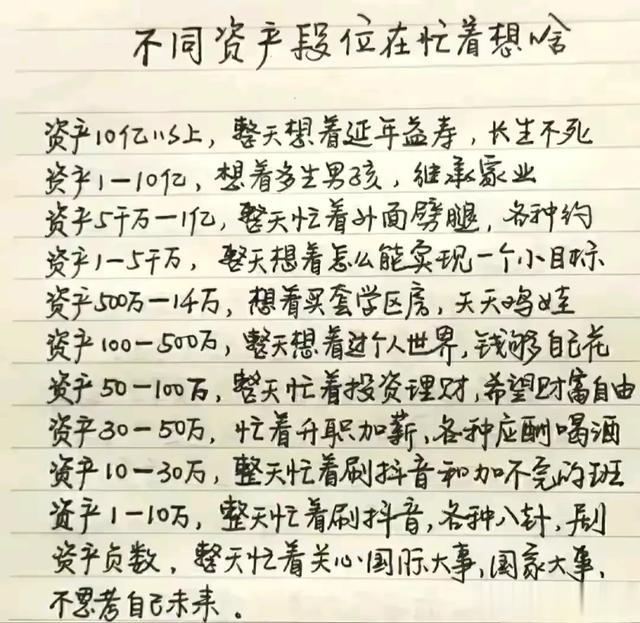 不同资产段位在忙着想啥
资产10亿以上，整天想着延年益寿，长生不死
资产1—10亿，想着多生男孩，继承家业
资产5千万—1亿，整天忙着外面劈腿，各种约
资产1—5千万，整天想着怎么能实现一个小目标
资产500万—1千万，想着买套学区房，天天鸡娃
资产100—500万，整天想着过个人世界，钱够自己花
资产50—100万，整天忙着投资理财，希望财富自由
资产30—50万，忙着升职加薪，各种应酬喝酒
资产10—30万，整天忙着刷抖音和加不完的班
资产1—10万，整天忙着刷抖音，各种八卦，剧
资产负数，整天忙着关心国际大事，国家大事，
不思考自己未来。